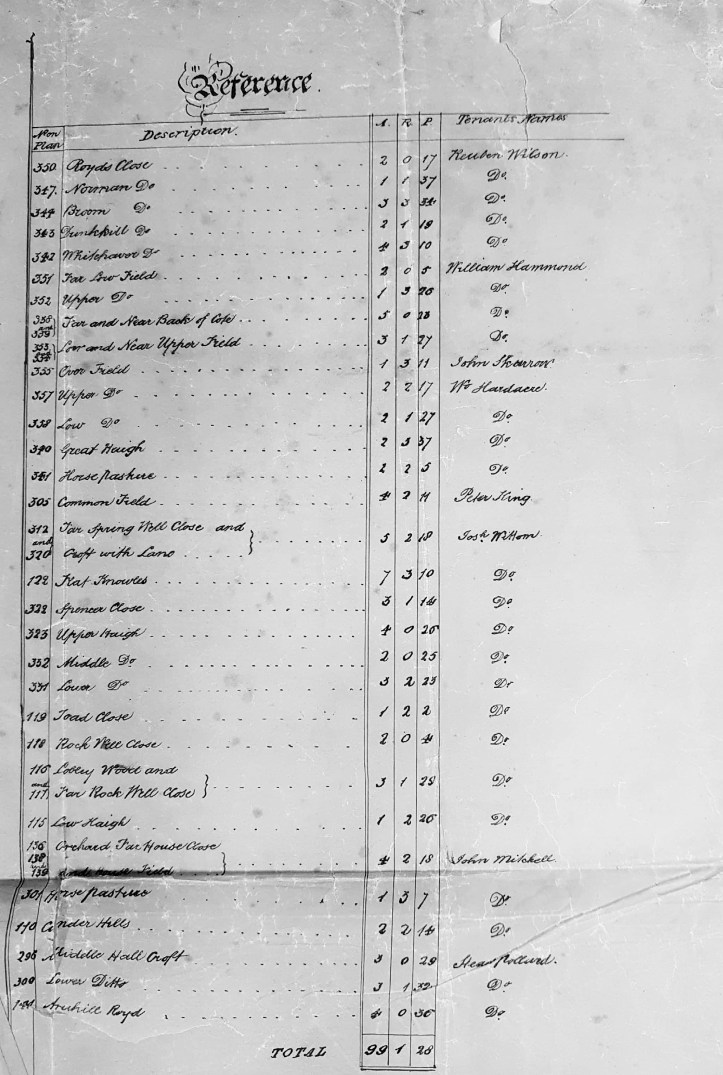 Reference.
No on Plan Description. A. R. P Tenants Names
350 Royds Close 2 0 17 Reuben Wilson.
347. Norman Do 1 1 37 Do.
344 Broom Do 3 3 34 Do.
343 Dunkhill Do 2 1 19 Do.
342 Whitehaver Do 4 3 10 Do
351 Far Low Field 2 0 5 William Hammond
352 Upper Do 1 3 Do.
and 339 Far and Near Back of Cote 5 0 23 Do.
353 354 Low and Near Upper Field 3 1 27 Do.
355 Over Field 1 3 11 John Skurrow
357 Upper Do 2 2 17 Wm Hardacre.
358 Low Do 2 1 27 Do.
340 Great Haigh 2 3 37 Do.
341 Horse pasture 2 2 5 Do.
305 Common Field 4 2 11 Peter King
312 Far Spring Well Close and
and
320 Croft with Lane 5 2 18 Josh Wittom
122 Kat Knowles 7 3 10 Do.
322 Spencer Close 3 1 14 Do.
323 Upper Haigh 4 0 26 Do.
332 Middle Do 2 0 25 Do.
331 Lower Do 3 2 23 Do
119 Toad Close 1 2 2 Do
118 Rock Well Close 2 0 4 Do.
116 Lobley Wood and
and
117 Far Rock Well Close 3 1 29 Do.
115 Low Haigh 1 2 26 Do.
136 Orchard Far House Close
138
139 and House Field 4 2 18 John Mitchell
301 Horse pasture 1 3 7 Do
140 Cinder Hills 2 2 14 Do
296 Middle Hall Croft 3 0 29 Pollard.
300 Lower Ditto 3 1 32 Do
Royd 4 0 36 Do.
TOTAL 99 1 28